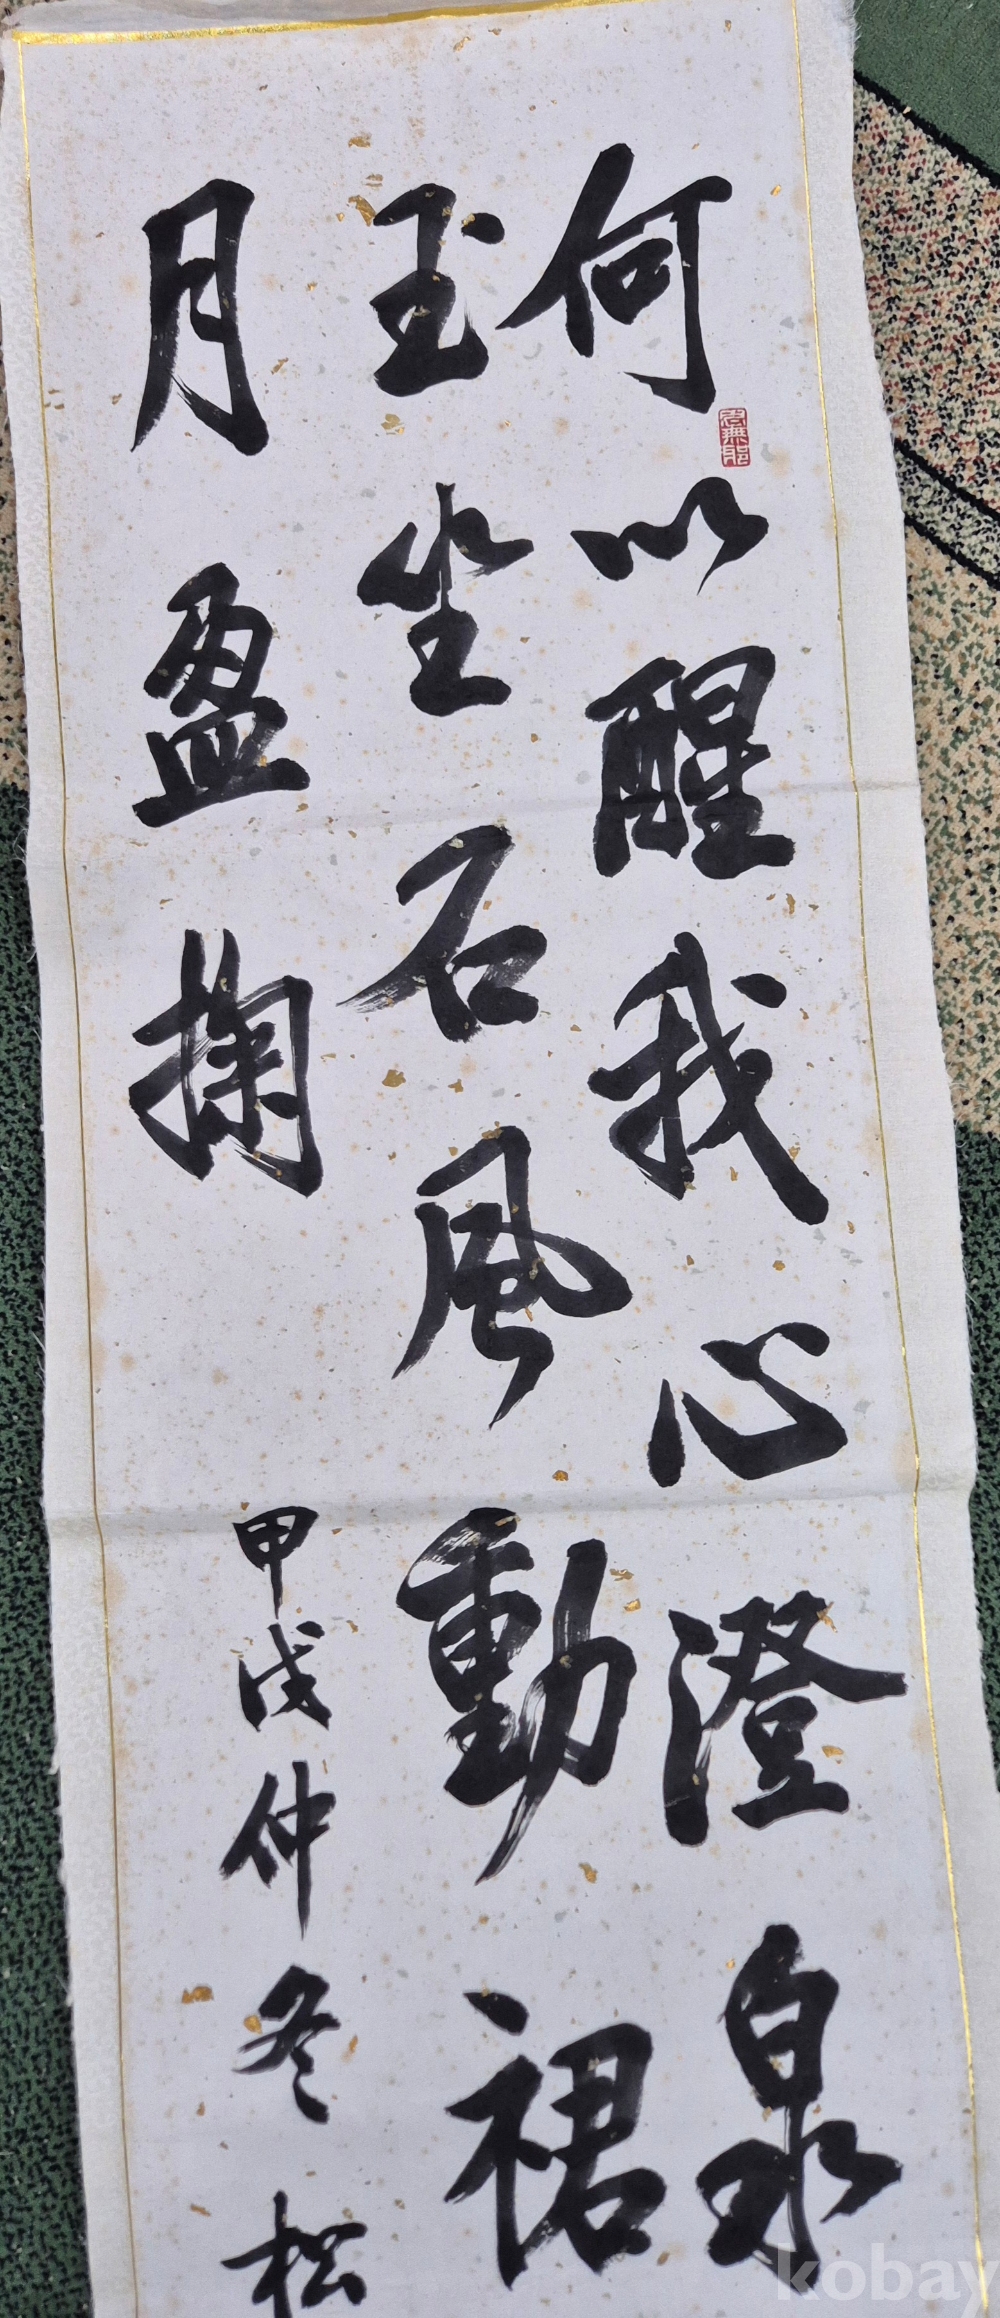 何以醒我心澄泉
玉坐石風動裙
月盈掬
甲戌仲冬松
思無邪
kobay